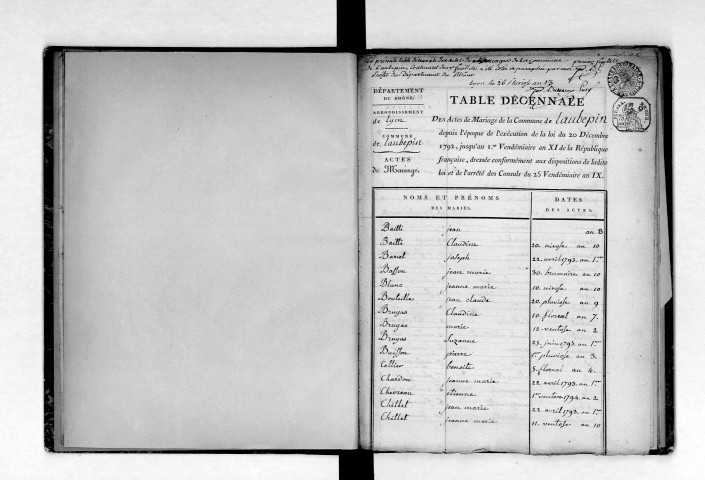 La présente table décennale des actes de mariages de la commune
de Laubepin, contenant deux feuillets, a été cotée et paraphée par nous
Préfet du département du Rhône
Lyon le 26
DÉPARTEMENT
DU RHÔNE.
ARRONDISSEMENT
de Lyon
COMMUNE
de Laubepin
ACTES
de Mariage.
TABLE DÉCENNALE
Des Actes de Mariage de la Commune de Laubepin
depuis l'époque de l'exécution de la loi du 20 Décembre
1792, jusqu'au 1.er Vendémiaire an XI de la République
française, dressée conformément aux dispositions de ladite
loi et de l'arrêté des Consuls du 25 Vendémiaire an IX.
NOMS ET PRÉNOMS
DES MARIÉS.
DATES
DES ACTES.
Bailli jean an 8
Bailli Claudine 20. nivose an 10
Bariel joseph 22. avril 1793. an 1.er
Basson jean marie 30. brumaire an 10
Blanc jeanne marie 10. nivose an 10
Bouteille jean claude 20. pluviose an 9
Bruyas Claudine 10. floreal an 7.
Bruyas marie 12. ventose an 2
Bruyas Suzanne 25. juin 1793. an 1.er
Buisson pierre 1.er pluviose an 3.
Collier benoite 5. floreal an 4.
Chardon jeanne marie 22. avril 1793. an 1.er
Chevreau etienne 1794. an 2
Chillet jean marie 22. avril 1793. an 1.er
Chillet jeanne marie 11. ventose an 10